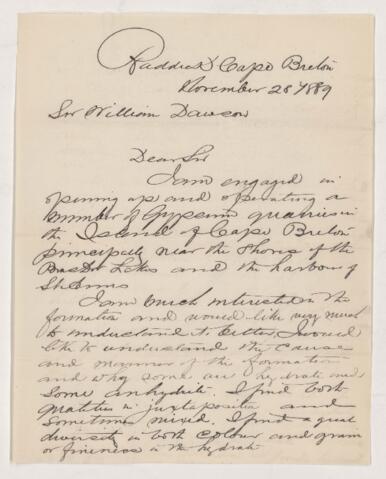 Baddeck Cape Breton
November 26 1889
Sir William Dawson
Dear Sir
I am engaged in
opening up and operating a
number of Gypsum quarries in
the Island of Cape Breton
principally near the shores of the
Bras Dr Lakes and the harbour of
St Anns
I am much interested in the
formation and would like very much
to understand it better, I would
like to understand the cause
and manner of the formation
and why some are hydrate and
some anhydrite. I find both
qualities in juxtaposition and
sometimes mixed. I find a great
diversity in both colour and grain
or fineness in the hydrate